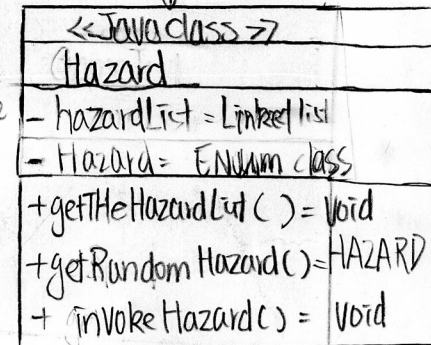 <<Java class>>
Hazard
- hazardList = Linked list
- Hazard = ENUum class
+getTHeHazardList() = Void
+getRandom Hazard() = HAZARD
+ invoke Hazard() = Void